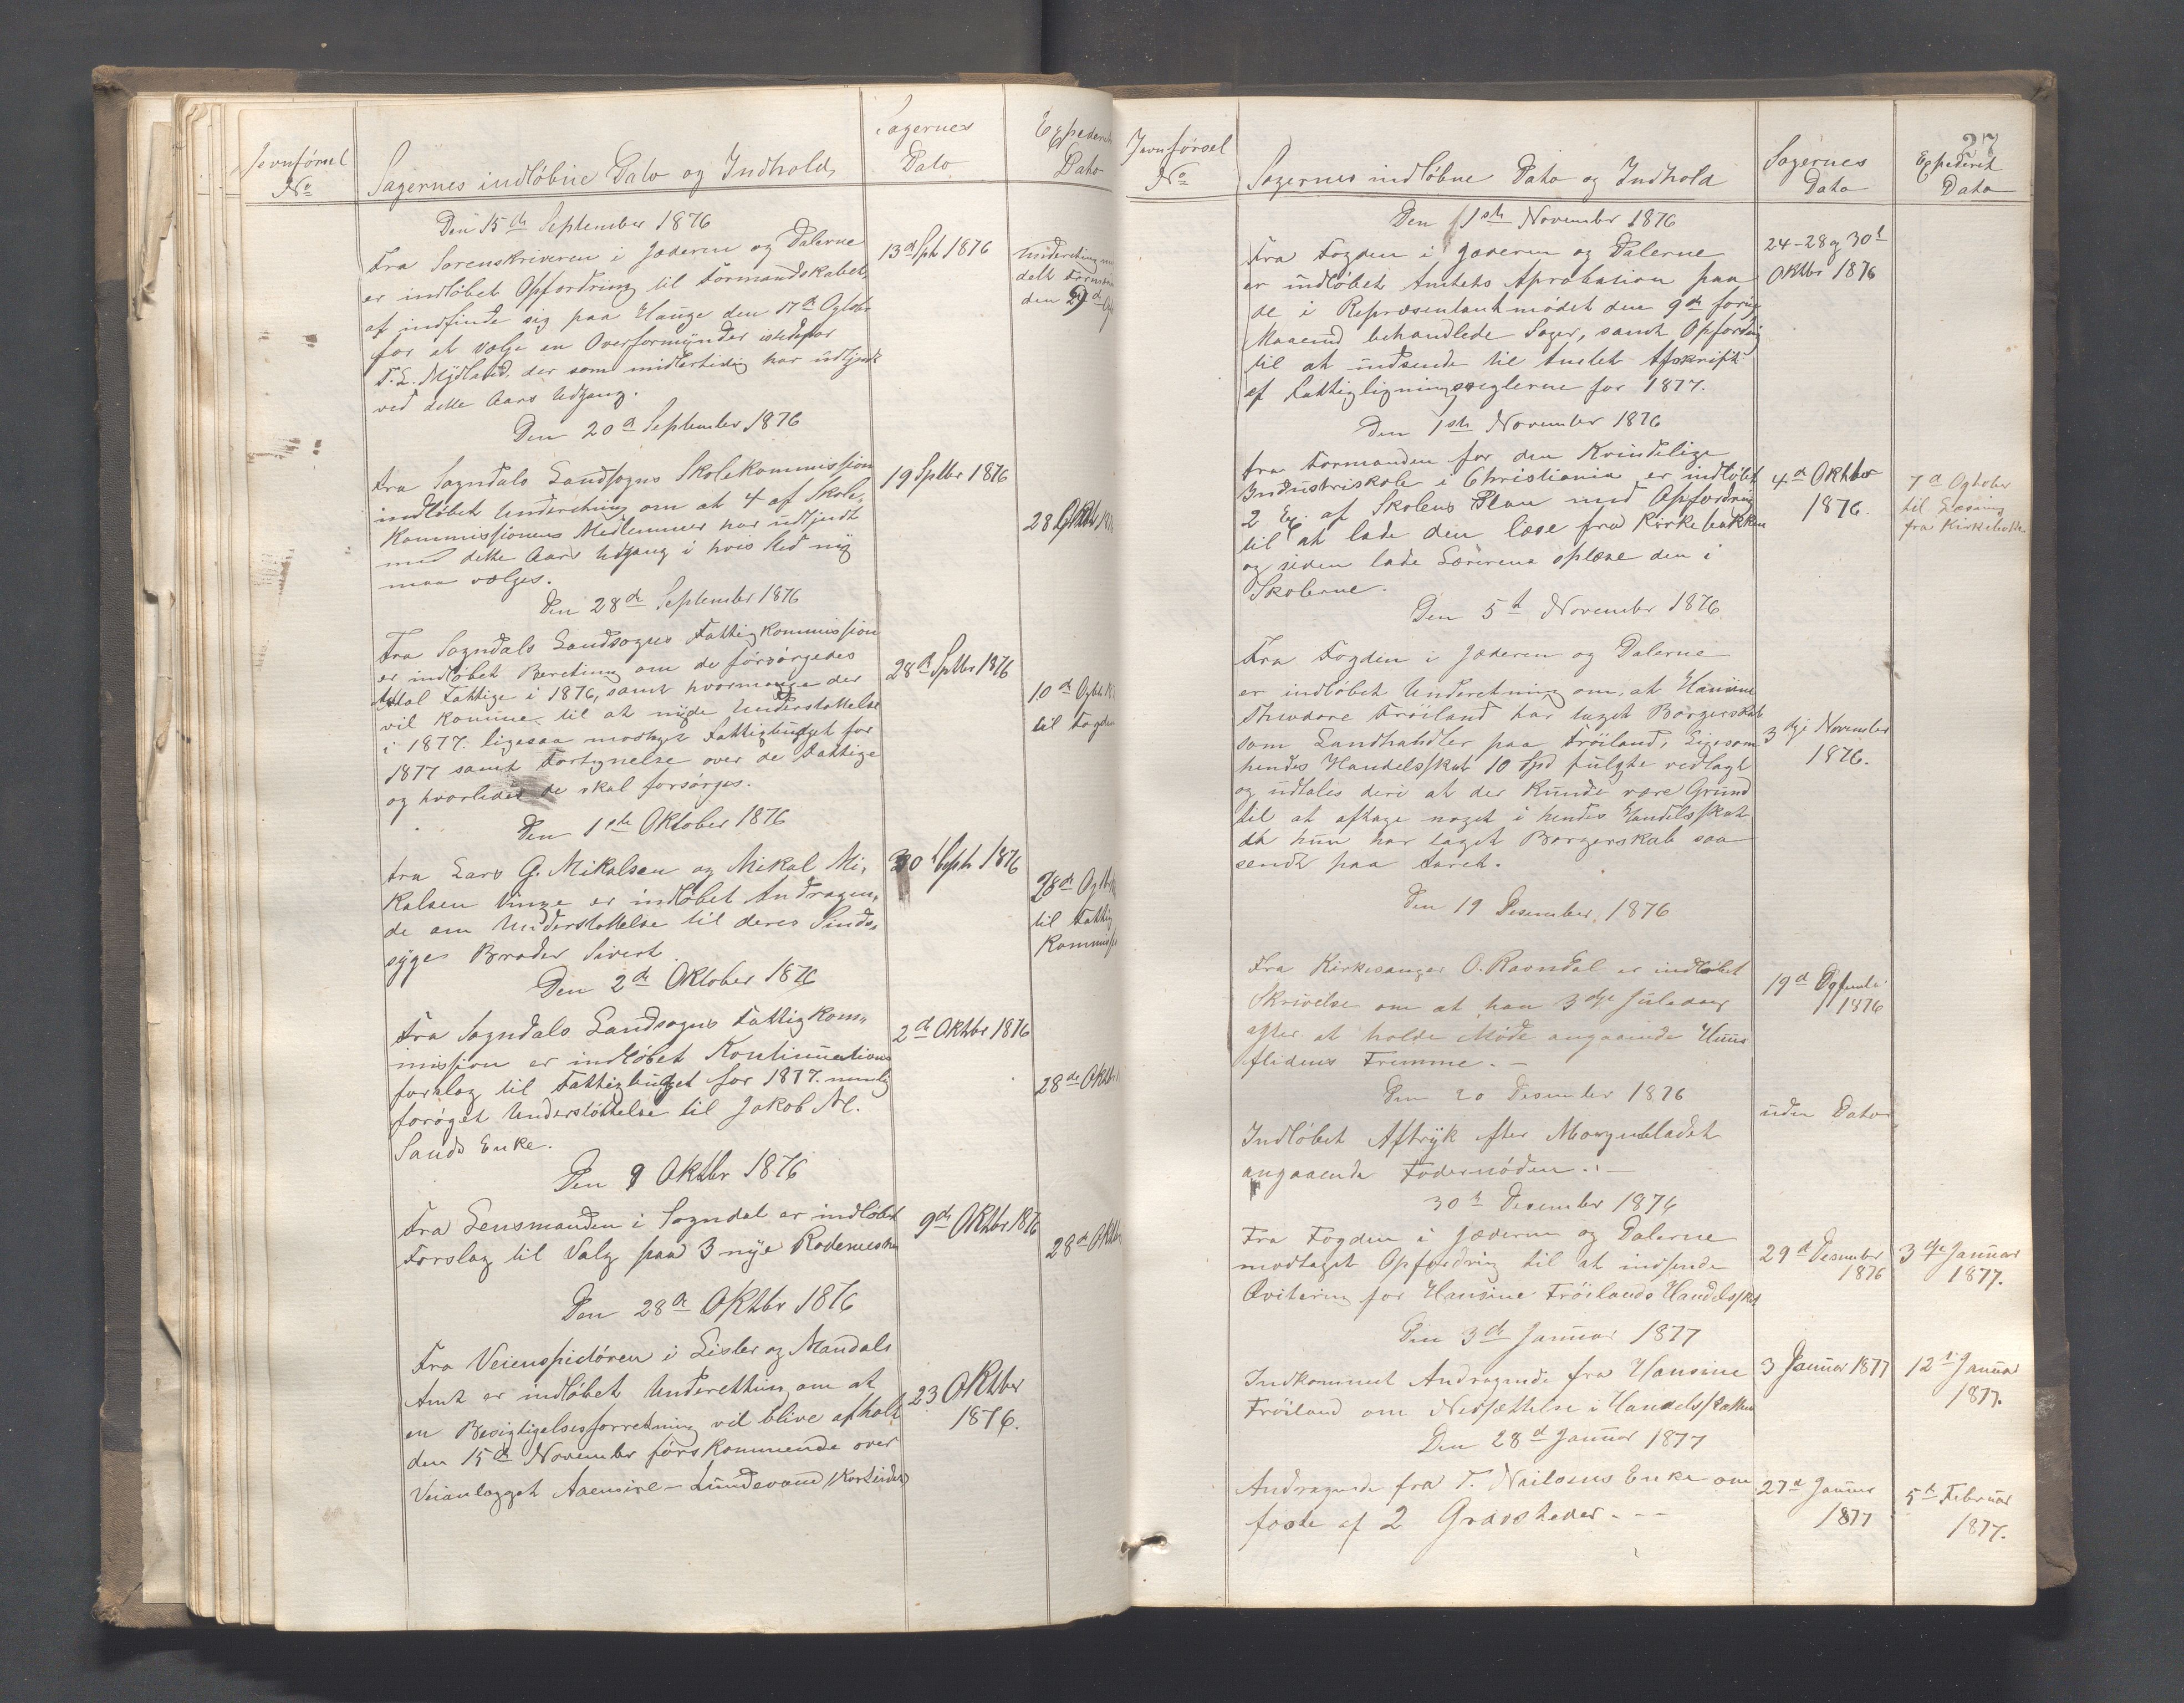 Jevnförsel
No
Sagernes indlöbne Dato og Indhold
Sagernes
Dato
Expederet
Dato
Den 15de September 1876
Fra Sorenskriveren i Jæderen og Dalerne
er indlöbet Opfordring til Formandskabet
af indfinde sig paa Hauge den 17de Ogtober
for at vælge en Overformynder istedefor
T. L. Mydland, der som midlertidig har udtjent
ved dette Aars Udgang.
13de Spt 1876
Underetning
delt
den 29de
Den 20de September 1876
Fra Sogndals Landsogns Skolekommission
indlöbet Underetning om at 4 af Skole-
Kommissionens Medlemmer har udtjendt
med dette Aars Udgang i hvis Sted ny
maa vælges.
19 Sptbr 1876
28
Den 28de September 1876
Fra Sogndals Landsogns Fattigkommission
er indlöbet Beretning om de försörgedes
Antal Fattige i 1876, samt hvormange der
vil komme til at nyde Understøttelse
i 1877. ligesaa Fattigbudget for
1877 samt Fortegnelse over de Fattige
og hvorledes de skal forsörges.
28de Sptbr 1876
10de Ogtbr
til Fogden
Den 1ste Oktober 1876
Fra Lars G. Mikalsen og Mikal Mi-
kalsen Vinge er indløbet Andragen-
de om Understøttelse til deres Sinds-
syge Broder Sivert.
30 Septr 1876
28de Ogtbr
til Fattig
Kommiss
Den 2de Oktober 1876
Fra Sogndals Landsogns Fattigkom-
mission er indlöbet Kontinuations
forslag til Fattigbudget for 1877. nemlig
forøget Understöttelse til Jakob M.
Sands Enke.
2de Oktbr 1876
28de Oktbr
Den 9 Oktbr 1876
Fra Lensmanden i Sogndal er indlöbet
Forslag til Valg paa 3 nye Rodemestre
9de Oktbr 1876
28de Oktbr
Den 28de Oktbr 1876
Fra Veienspidören i Lister og Mandals
Amt er indlöbet Underettning om at
en Besigtigelsesforretning vil blive afholdt
den 15de November förstkommende over
Veianlægget Aaensire - Lundevand
23 Oktber
1876.
27
Jevnförsel
No
Sagernes indlöbne Dato og Indhold
Sagernes
Dato
Expederet
Dato
Den 1ste November 1876
Fra Fogden i Jæderen og Dalerne
er indlöbet Amtets Aprobation paa
de i Repræsentantmødet den 9de forrige
Maaned behandlede Sager, samt Opfordring
til at indsende til Amtet Afskrift
af Fattigligningsreglerne for 1877.
24-28 og 30te
Oktbr 1876
Den 1ste November 1876
Fra Formanden for den Kvindelige
Industriskole i Christiania er indlöbet
2 Ex. af Skolens Plan med Opfordring
til at lade den læse fra Kirkebakken
og siden lade Lærerene oplæse den i
Skolerne.
4de Oktber
1876.
7de Ogtober
til Læsning
fra Kirkebakken
Den 5te November 1876
Fra Fogden i Jæderen og Dalerne
er indlöbet Underetning om, at Hansine
Theodore Fröiland har taget Borgerskab
som Landhandler paa Fröiland, Ligesom
hendes Handelsskat 10 Spd fulgte vedlagt
og udtales deri at der kunde være Grund
til at aftage noget i hendes Handelsskat
da hun har taget Borgerskab saa
sendt paa Aaret.
3dje November
1876.
Den 19 Desember 1876
Fra Kirkesanger O. Ravndal er indlöbet
Skrivelse om at han 3dje Juledag
agter at holde Möde angaaende Huus
flidens Fremme. -
19de
1876
Den 20 Desember 1876
Indlöbet Aftryk efter Morgenbladet
angaaende Fodernöden. -
uden Dato
30te Desember 1876
Fra Fogden i Jæderen og Dalerne
modtaget Opfordring til at indsende
Qvitering for Hansine Fröilands Handelsskat
29de Desember
1876
3dje Januar
1877.
Den 3de Januar 1877
Indkommet Andragende fra Hansine
Fröiland om Nedsættelse i Handelsskatten
3 Januar 1877
12te Januar
1877.
Den 28de Januar 1877
Andragende fra T. Nilsens Enke om
fæste af 2 Gravsteder. - -
27de Januar
1877
5te Februar
1877.